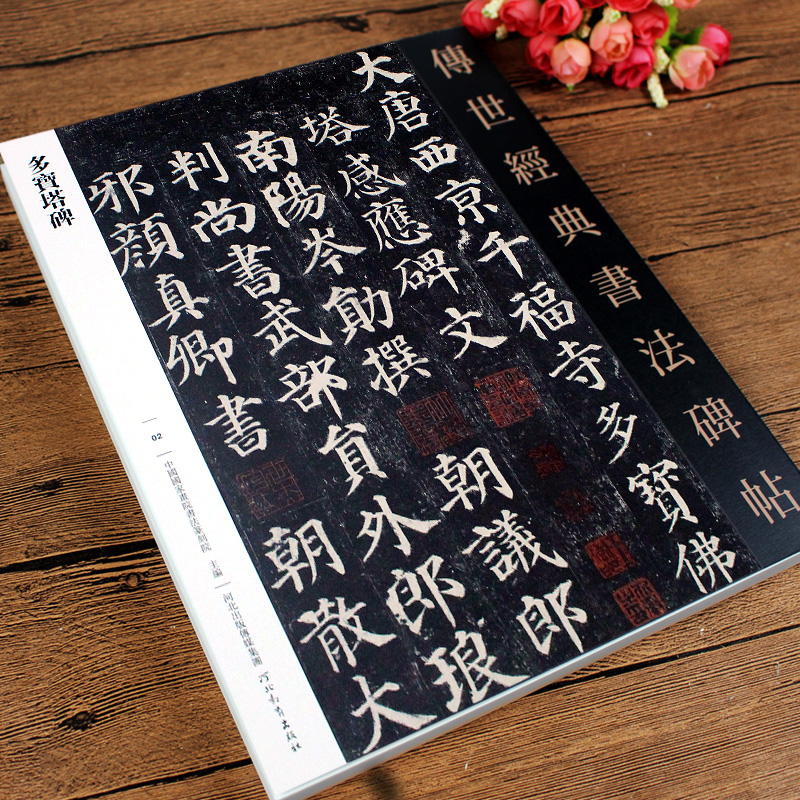 傳世經典書法碑帖
大唐西京千福寺多寶佛
塔感應碑文
南陽岑勛撰 朝議郎
判尚書武部員外郎琅
邪顏真卿書 朝散大
多寶塔碑
02
中國國家畫院書法篆刻院 主編
河北出版傳媒集團 河北教育出版社